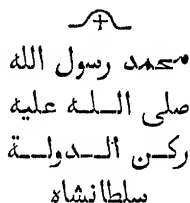 محمد رسول الله
صلى اللـه عليه
ركـن الـدولـة
سلطانشاه